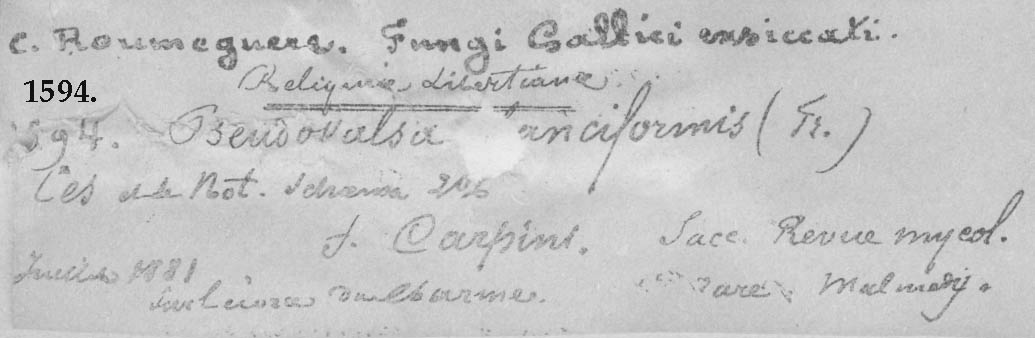 C. Roumeguere. Fungi Gallici exsiccati.
Reliquiæ Libertianæ.
1594.
594. Pseudovalsa lanciformis (Fr.)
Ces et de Not. Schema 206
f. Carpini. Sacc. Revue mycol.
1881
Sur l'écorce du Charme. rare Malmedy.